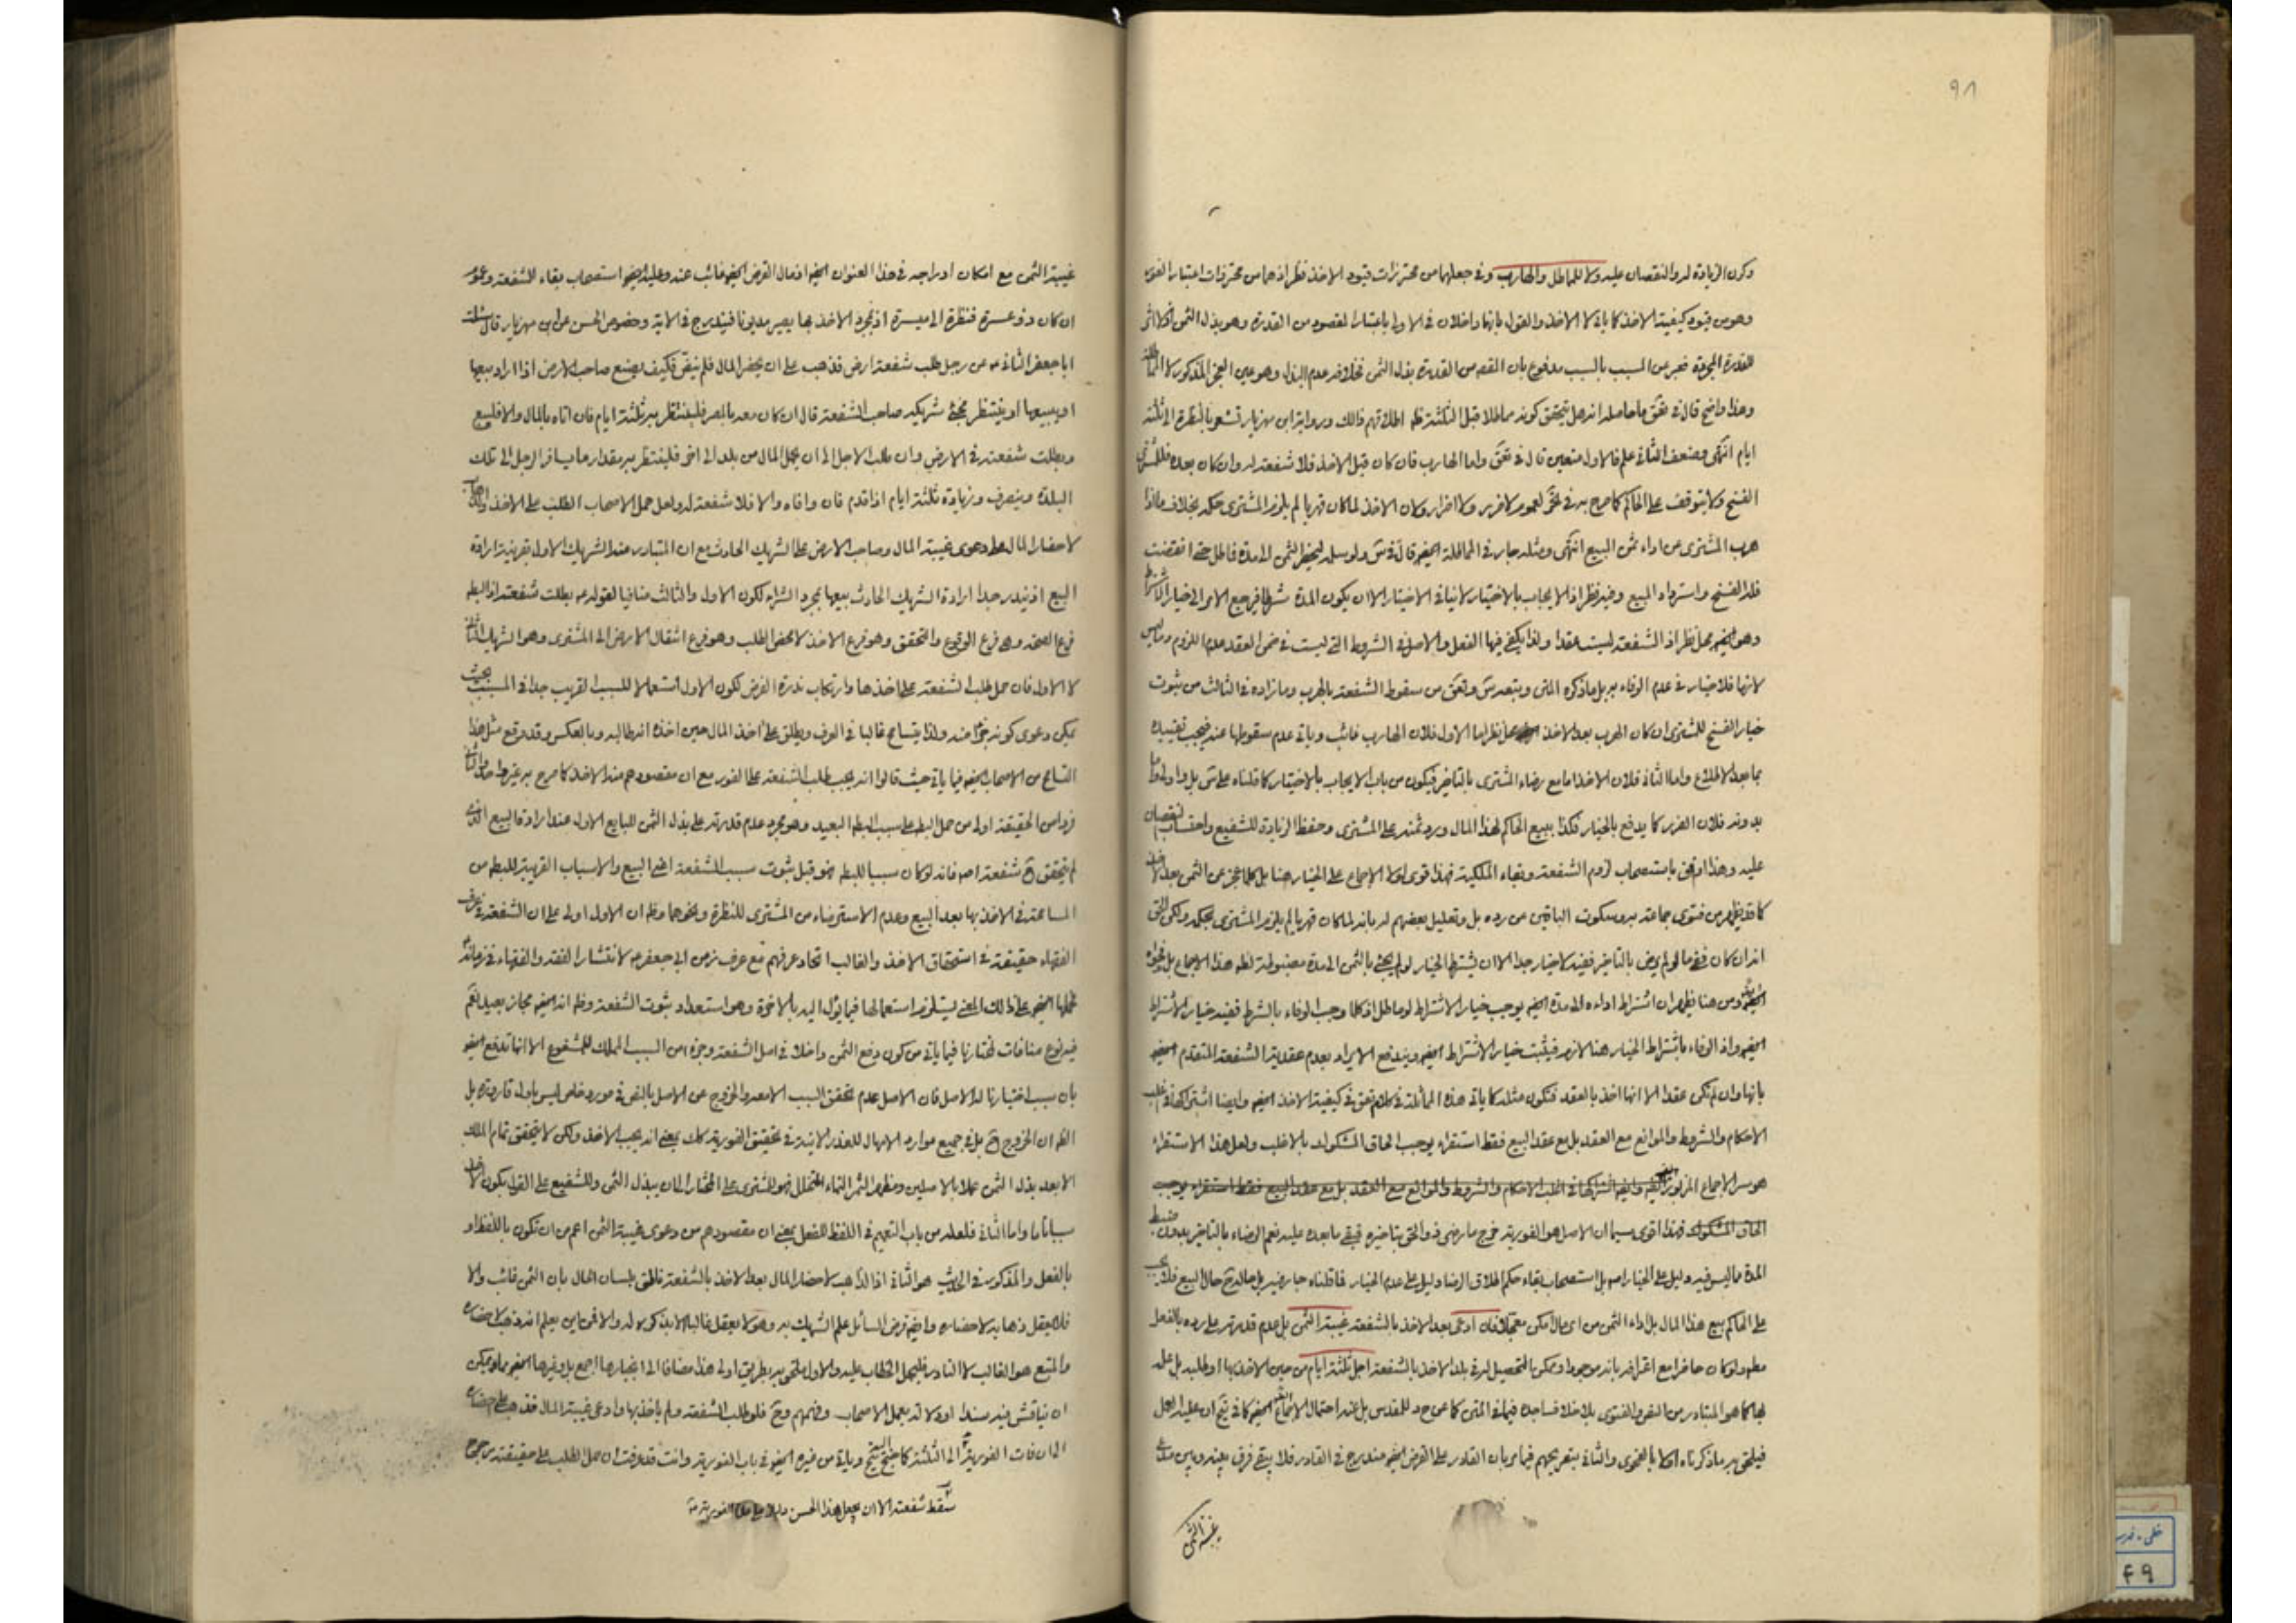 ٩٨
وكون الزيادة له والنقصان عليه ولا للماطل والهارب وفي جعلهما من محترزات قيود الاخذ نظر اذ هما من محترزات اعتبار الفور
وهو من قيود كيفية الاخذ كما ياتى لا الاخذ والقول بانهما داخلان في الاول باعتبار المقصود من القدرة وهو بذل الثمن
القدرة المجردة فعبر عن المسبب بالسبب مدفوع بان القصد من القدرة بذل الثمن فخلافه عدم البذل وهو عين العجز المذكور لا
وهذا واضح قال في تحقق ما حاصله انه هل يتحقق كونه مماطلا قبل الثلثة ظ اطلاقهم ذالك ورواية ابن مهزيار تشعر بالنظرة الى ثلثة
ايام انتهى وضعف الثاني علم فالاول متعين قال في واما الهارب فان كان قبل الاخذ فلا شفعة له وان كان بعده فللمشترى
الفسخ ولا يتوقف على الحاكم كما صرح به في لعموم لا ضرر ولا اضرار ولان الاخذ لما كان قهريا لم يلزم المشترى حكمه بخلاف ما اذا
هرب المشترى عن اداء ثمن البيع انتهى ومثله جار في المماطلة ايضا قال في ولو سلمه ليحضر الثمن الى مدة فماطل حتى انقضت
فله الفسخ واسترداد المبيع وفيه نظر اذ الايجاب بالاختيار لا ينافي الاختيار الا ان يكون المدة شرطا فيرجع الامر الى خيار الاشتراط
وهو ايضا محل نظر اذ الشفعة ليست عقدا ولذا يكفي فيها الفعل والاصل في الشروط التى ليست في ضمن العقد عدم اللزوم وليس
لازما فلا خيار في عدم الوفاء به بل ما ذكره المتن وتبعه من سقوط الشفعة بالهرب وما زاده في الثالث من ثبوت
خيار الفسخ للمشترى ان كان الهرب بعد الاخذ محل نظر اما الاول فلان الهارب غائب وياتى عدم سقوطها عنه فيجب تقييده
بما بعد الاطلاع واما الثانى فلان الاخذ اما مع رضاء المشترى بالتاخير فيكون من باب الايجاب بالاختيار كما قلناه على بل
بدونه فلان الضرر كما يدفع بالخيار فكذا ببيع الحاكم لهذا المال ورد ثمنه على المشترى وحفظ الزيادة للشفيع واحتساب النقصان
عليه وهذا اوفق باستصحاب لزوم الشفعة وبقاء الملكية فهذا قوى لولا الاجماع على الخيار هنا بل كلما عجز عن الثمن بعد الاخذ
كما قد يظهر من فتوى جماعة به وسكوت الباقين عن رده بل وتعليل بعضهم له بانه لما كان قهريا لم يلزم المشترى حكمه ولكن الحق
انه ان كان فيما لو لم يرض بالتاخير ففيه لا خيار جدا الا ان يشترط الخيار لو لم يجئ بالثمن الى مدة مضبوطة
ومن هنا يظهر ان اشتراط اداءه الى مدة ايضا يوجب خيار الاشتراط لو ماطل اذ كلما وجب الوفاء بالشرط ففيه خيار الاشتراط
ايضا واذ الوفاء باشتراط الخيار هنا لازم فيثبت خيار الاشتراط ايضا ويندفع الايراد بعدم عقدية الشفعة المتقدم ايضا
بانها وان لم تكن عقدا الا انها اخذ بالعقد فتكون مثله كما ياتى هذه المماثلة في كلام في كيفية الاخذ ايضا وايضا اشتراكها في اغلب
الاحكام والشروط والموانع مع العقد بل مع عقد البيع فقط استقراء يوجب الحاق المشكوك بالاغلب ولعل هذا الاستقراء
هو سر الاجماع المزبور ايضا وايضا اشتراكها في اغلب الاحكام والشروط والموانع مع العقد بل مع عقد البيع فقط استقراء يوجب
الحاق المشكوك فهذا اقوى سيما ان الاصل هو الفورية خرج ما رضى ذو الحق بتاخيره فبقى ما بعده عليه نعم الرضاء بالتاخير بدون ضبط
المدة مما ليس فيه دليل على الخيار اصلا بل استصحاب بقاء حكم اطلاق الرضا دليل على عدم الخيار فما قلناه جار فيه بل حاله ح حال البيع فلا يجب
على الحاكم بيع هذا المال بل اداء الثمن من اى مال امكن فان ادعى بعد الاخذ بالشفعة غيبة الثمن بل عدم قدرته على رده بالفعل
مطلقا ولو كان حاضرا مع اعترافه بانه موجود او ممكن بالتحصيل له في بلد الاخذ بالشفعة اجل ثلثة ايام من حين الاخذ بها او طلبه بل على
كما هو المتبادر من النص والفتوى بلا خلاف اجده فيما في المتن كما عن حد للمقدس بل عنه احتمال الاجماع ايضا كما في ان عليه العمل
فيلحق به ما ذكرناه اولا بالفحوى والثانى بتصريحهم فيما مر بان القادر على القرض ايضا مندرج في القادر فلا يبقى فرق بينه وبين مدعى
غيبة الثمن
غيبة الثمن مع امكان ادراجه في هذا العنوان ايضا اذ مال القرض ايضا غائب عنه وعليه يجرى استصحاب بقاء الشفعة وعموم
ان كان ذو عسرة فنظرة الى ميسرة اذ بمجرد الاخذ بها يصير مديونا فيندرج في الاية وخصوص الحسن عن ابن مهزيار قال سئلت
ابا جعفر الثانى ع عن رجل طلب شفعة ارض فذهب على ان يحضر المال فلم ينض فكيف يصنع صاحب الارض اذا اراد بيعها
ايبيعها او ينتظر مجئ شريكه صاحب الشفعة قال ان كان معه بالمصر فلينتظر به ثلثة ايام فان اتاه بالمال والا فليبع
وبطلت شفعته في الارض وان طلب الاجل الى ان يحمل المال من بلد الى اخر فلينتظر به مقدار ما يسافر الرجل الى تلك
البلدة وينصرف وزيادة ثلثة ايام اذا قدم فان وافاه والا فلا شفعة له ولعل حمل الاصحاب الطلب على الاخذ والذهاب
لاحضار المال على دعوى غيبة المال وصاحب الارض على الشريك الحادث مع ان المتبادر منه الشريك الاول بقرينة ارادة
البيع اذ يندر جدا ارادة الشريك الحادث بيعها بمجرد الشراء لكون الاول والثالث منافيا لقوله ع بطلت شفعته اذ البطلان
فرع الصحة وهى فرع الوقوع والتحقق وهو فرع الاخذ لا محض الطلب وهو فرع انتقال الارض الى المشترى وهو الشريك الثانى
لا الاول فان حمل طلب الشفعة على اخذها وارتكاب ندرة الفرض لكون الاول استعمالا للسبب القريب جدا في المسبب بحيث
يمكن دعوى كونه جزءا منه ولذا يتسامح غالبا في العرف ويطلق على اخذ المال حين اخذه انه طالبه وبالعكس وقد وقع مثل هذا
التسامح من الاصحاب ايضا فيما ياتى حيث قالوا انه يجب طلب الشفعة على الفور مع ان مقصودهم منه الاخذ كما صرح به غير واحد
فرد من الحقيقة اولى من حمل البطلان على سبب البطلان البعيد وهو مجرد عدم قدرته على بذل الثمن للبايع الاول عند ارادة البيع الذى
لم يتحقق ح شفعة اصلا فانه لو كان سببا للبطلان فهو قبل ثبوت سبب الشفعة اعنى البيع والاسباب القريبة للبطلان من
المسامحة في الاخذ بها بعد البيع وعدم الاسترضاء من المشترى للنظرة ونحوهما وظ ان الاول اولى على ان الشفعة في عرف
الفقهاء حقيقة في استحقاق الاخذ والغالب اتحاد عرفهم مع عرف زمن ابى جعفر ع لانتشار الفقه والفقهاء في زمانه
فحملها ايضا على ذالك المعنى يستلزم استعمالها فيما يؤل اليه بالاخرة وهو استعداد ثبوت الشفعة وظ انه ايضا مجاز بعيد نعم
فيه نوع منافات لمختارنا فيما ياتى من كون دفع الثمن داخلا في اصل الشفعة وجزء من السبب المملك للمشفوع الا انها تدفع ايضا
بان سبب اختيارنا له الاصل فان الاصل عدم تحقق السبب الا معه والخروج عن الاصل بالنص في مورد خاص ليس باول قارورة بل
الظ ان الخروج ح بل في جميع موارد الامهال للعذر الاتية في تحقيق الفورية كك بمعنى انه يجب الاخذ ولكن لا يتحقق تمام الملك
الا بعد بذل الثمن عملا بالاصلين ومظهر الثمر النماء المتخلل فهو للمشترى على المختار الى ان يبذل الثمن وللشفيع على القول بكون الاخذ
سببا تاما واما الثانى فلعله من باب التعميم في اللفظ للفعل بمعنى ان مقصودهم من دعوى غيبة الثمن اعم من ان تكون باللفظ او
بالفعل والمذكور في الحديث هو الثانى اذ الذاهب لاحضار المال بعد الاخذ بالشفعة ناطق بلسان الحال بان الثمن غائب والا
فلا يعقل ذهابه لاحضاره وايضا فرض السائل علم الشريك به وهو لا يعقل غالبا الا بذكره له والا فمن اين يعلم انه ذهب لاحضاره
والمتبع هو الغالب لا النادر فليحمل الخطاب عليه والاول ملحق به بطريق اولى هذا مضافا الى انجبارها اجمع بل وغيرها ايضا مما يمكن
ان يناقش فيه سندا او دلالة بعمل الاصحاب وفهمهم وح فلو طلب الشفعة ولم ياخذ بها وادعى غيبة المال فذهب على احضاره
الى ان فات الفورية الى الثلثة وياتى من غيره ايضا في باب الفورية وانت قد عرفت ان حمل الطلب على حقيقته مرجوح
سقط شفعته الا ان يجعل هذا الحسن دليلا على عدم الفورية